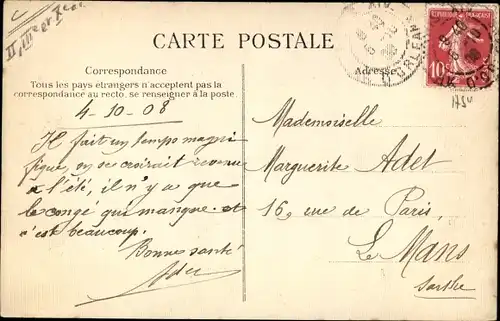 II, III
CARTE POSTALE
Correspondance
Tous les pays étrangers n'acceptent pas la
correspondance au recto, se renseigner à la poste.
Adresse
10c
4-10-08
Il fait un temps magni
fique, on se croirait revenu
à l'été, il n'y a que
le congé qui manque. et
c'est beaucoup.
Bonne santé
Mademoiselle
Marguerite Adet
16, rue de Paris,
Le Mans
Sarthe